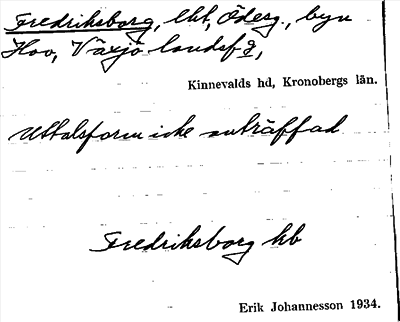 Fredriksborg, lht, Ödesg., byn
Hov, Växjö landsf g,
Kinnevalds hd, Kronobergs län.
Uttalsform icke anträffad
Fredriksborg kb
Erik Johannesson 1934.